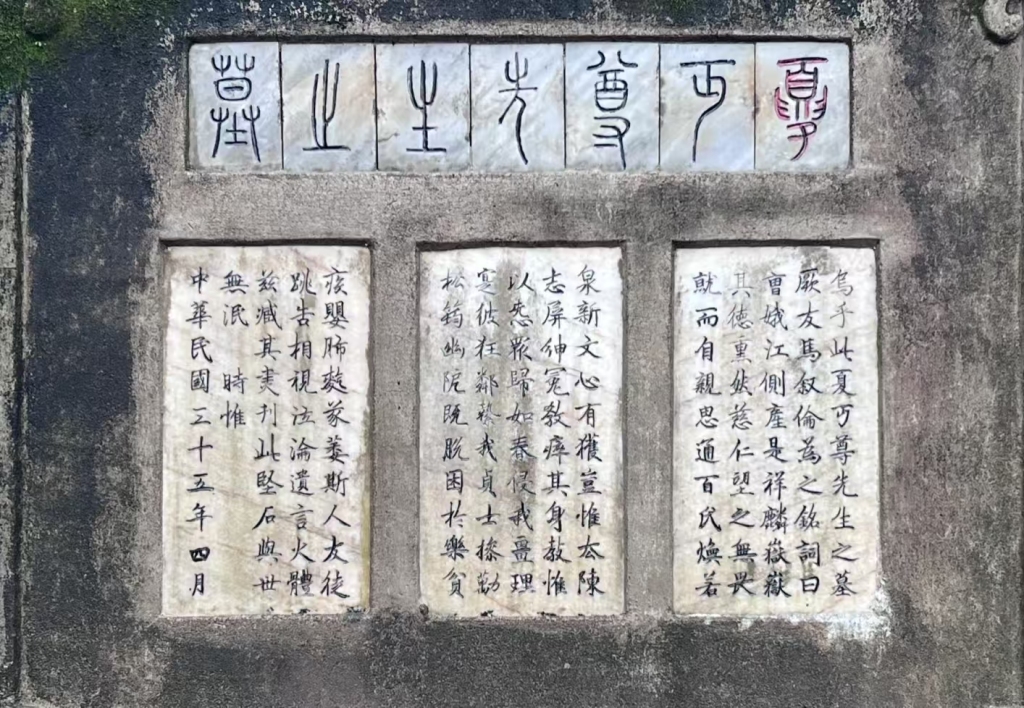 夏丏尊先生之墓
烏乎此夏丏尊先生之墓
厥友馬叙倫為之銘詞曰
曹娥江側產是祥麟嶽嶽
其德熏然慈仁望之無畏
就而自親思通百氏煥若
泉新文心有獲豈惟厺陳
志屏紳冕教瘁其身教惟
以㤅眾歸如春侵我畺理
寔彼狂鄰縶我貞士操勁
松筠幽阨既脫困於樂貧
疾嬰肺萎斯人友徒
跳告相視泣淪遺言火體
茲臧其刊此堅石與世
無泯 時惟
中華民國三十五年四月